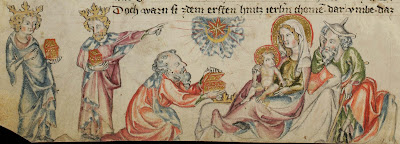 Doch warn si zdem ersten hintz ierlm chomē dar vmbe daz